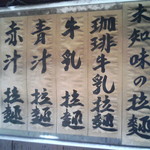 未知味の拉麺
珈琲牛乳拉麺
牛乳 拉麺
青汁 拉麺
赤汁 拉麺